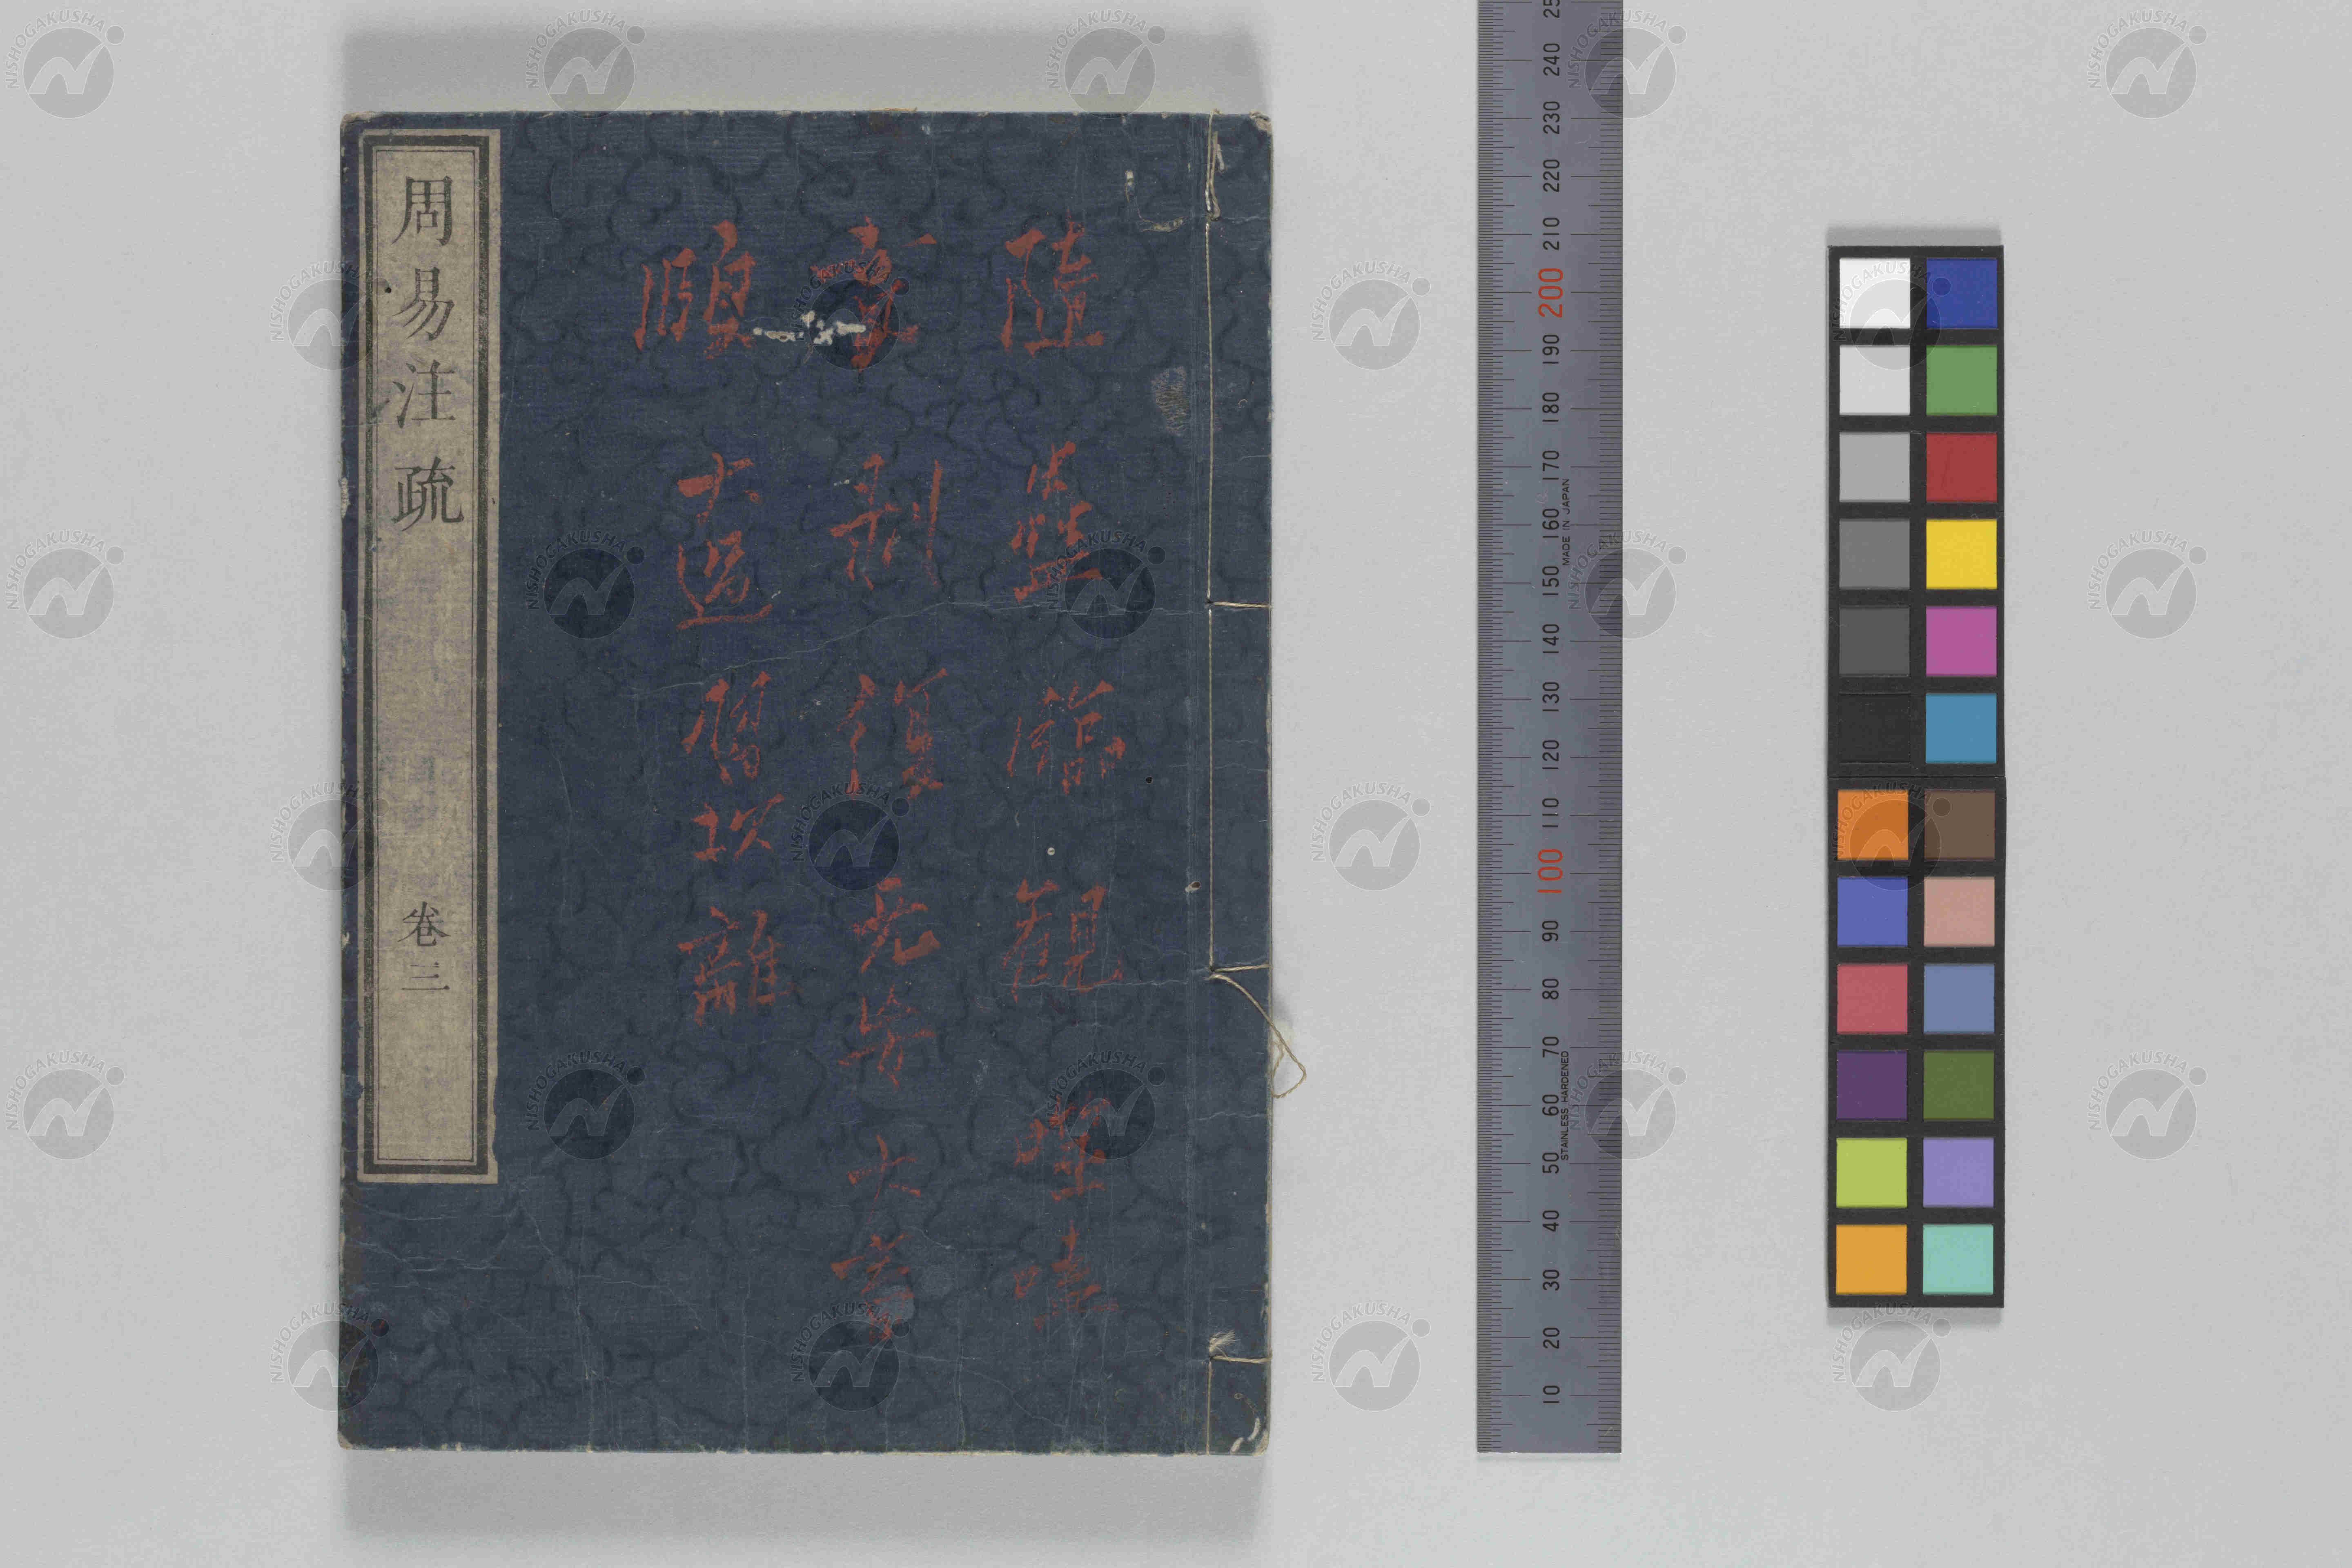 随 蠱 臨 観 噬嗑
賁 剥 復 无妄 大畜
頤 大過 習坎 離
周易注疏 卷三
10 20 30 40 50 60 70 80 90 100 110 120 130 140 150 160 170 180 190 200 210 220 230 240
STAINLESS HARDENED
MADE IN JAPAN
NISHOGAKUSHA